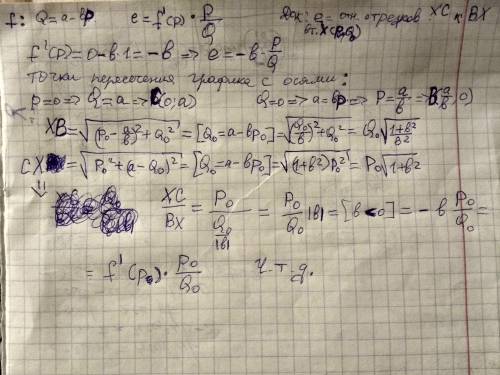 f: Q=a-bp   e=f'(p)·P/Q   Док: e= отн. отрезков XC к BX
вт. X(P₀,Q₀)
f'(P)=0-b·1=-b => e=-b·P/Q
точки пересечения графика с осями:
p=0=>Q=a=>C(0;a)   Q=0=>a=bp=>P=a/b=>B(a/b;0)
XB=√((P₀-a/b)²+Q₀²)=[Q₀=a-bP₀]=√((Q₀/b)²+Q₀²)=Q₀√((1+b²)/b²)
CX=√(P₀²+(a-Q₀)²)=[Q₀=a-bP₀]=√((1+b²)P₀²)=P₀√(1+b²)
⇓
XC/BX=P₀/(Q₀/|b|)=P₀/Q₀|b|=[b<0]=-b P₀/Q₀=
=f'(p₀)·P₀/Q₀   ч.т.д.